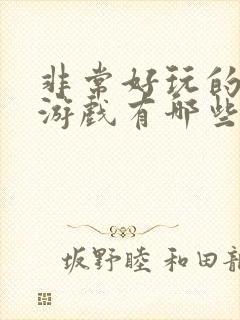 非常好玩的
游戏有哪些
坂野睦 和田龍